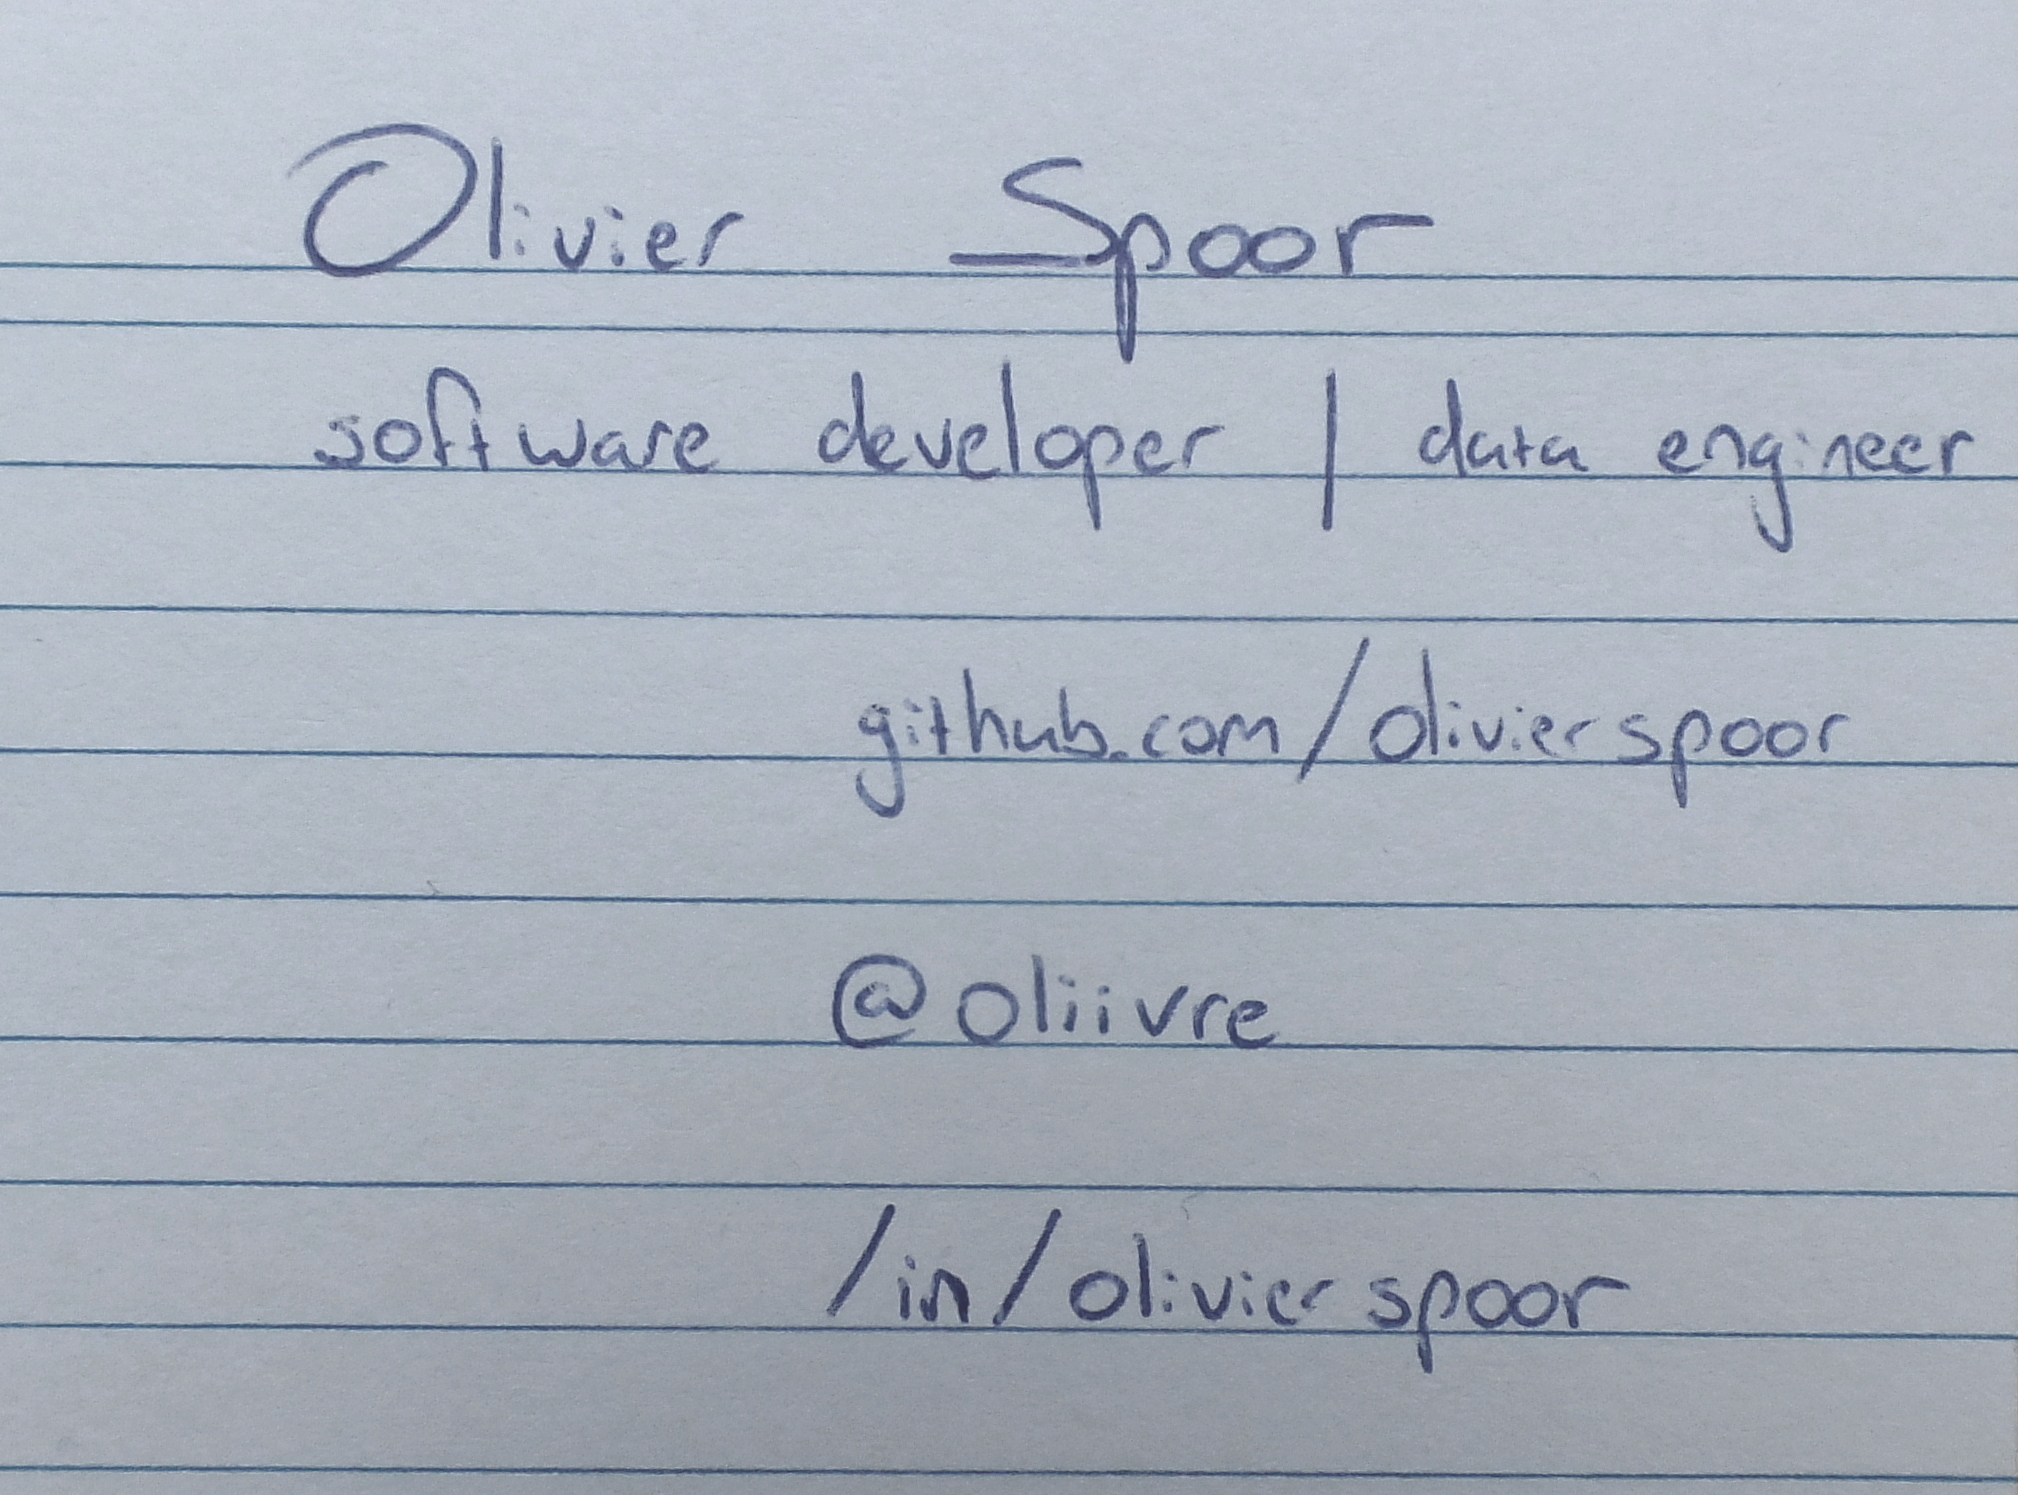 Olivier Spoor
software developer | data engineer
github.com/olivierspoor
@oliivre
/in/olivierspoor